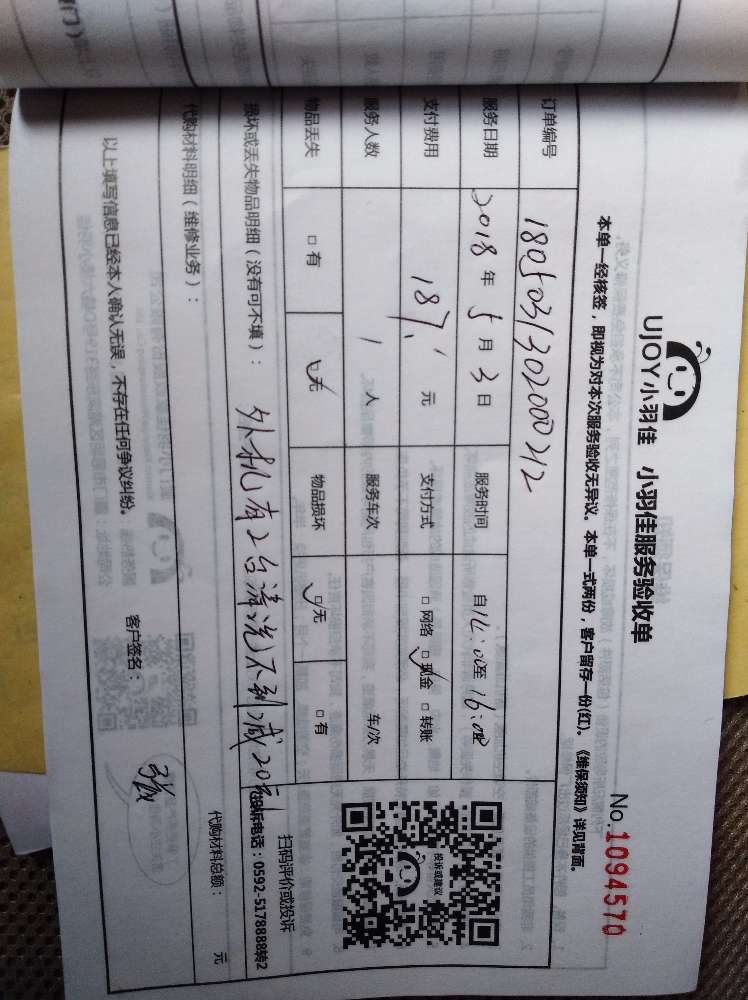 UJOY小羽佳 小羽佳服务验收单
No.1094570
本单一经核签，即视为对本次服务验收无异议。本单一式两份，客户留存一份(红)。《维保须知》详见背面。
订单编号 180503130200212
服务日期 2018 年 5 月 3 日 服务时间 自 14:00至 16:00
支付费用 187. 元 支付方式 □网络 □现金 □转账
服务人数 1 人 服务车次 车/次
物品丢失 □有 □无 物品损坏 □无 □有
投诉或建议
扫码评价或投诉
投诉电话：0592-5178888转2
损坏或丢失物品明细（没有可不填）： 外机有2台清洗不到减20元
代购材料明细（维修业务）： 代购材料总额： 元
以上填写信息已经本人确认无误，不存在任何争议纠纷。 客户签名：